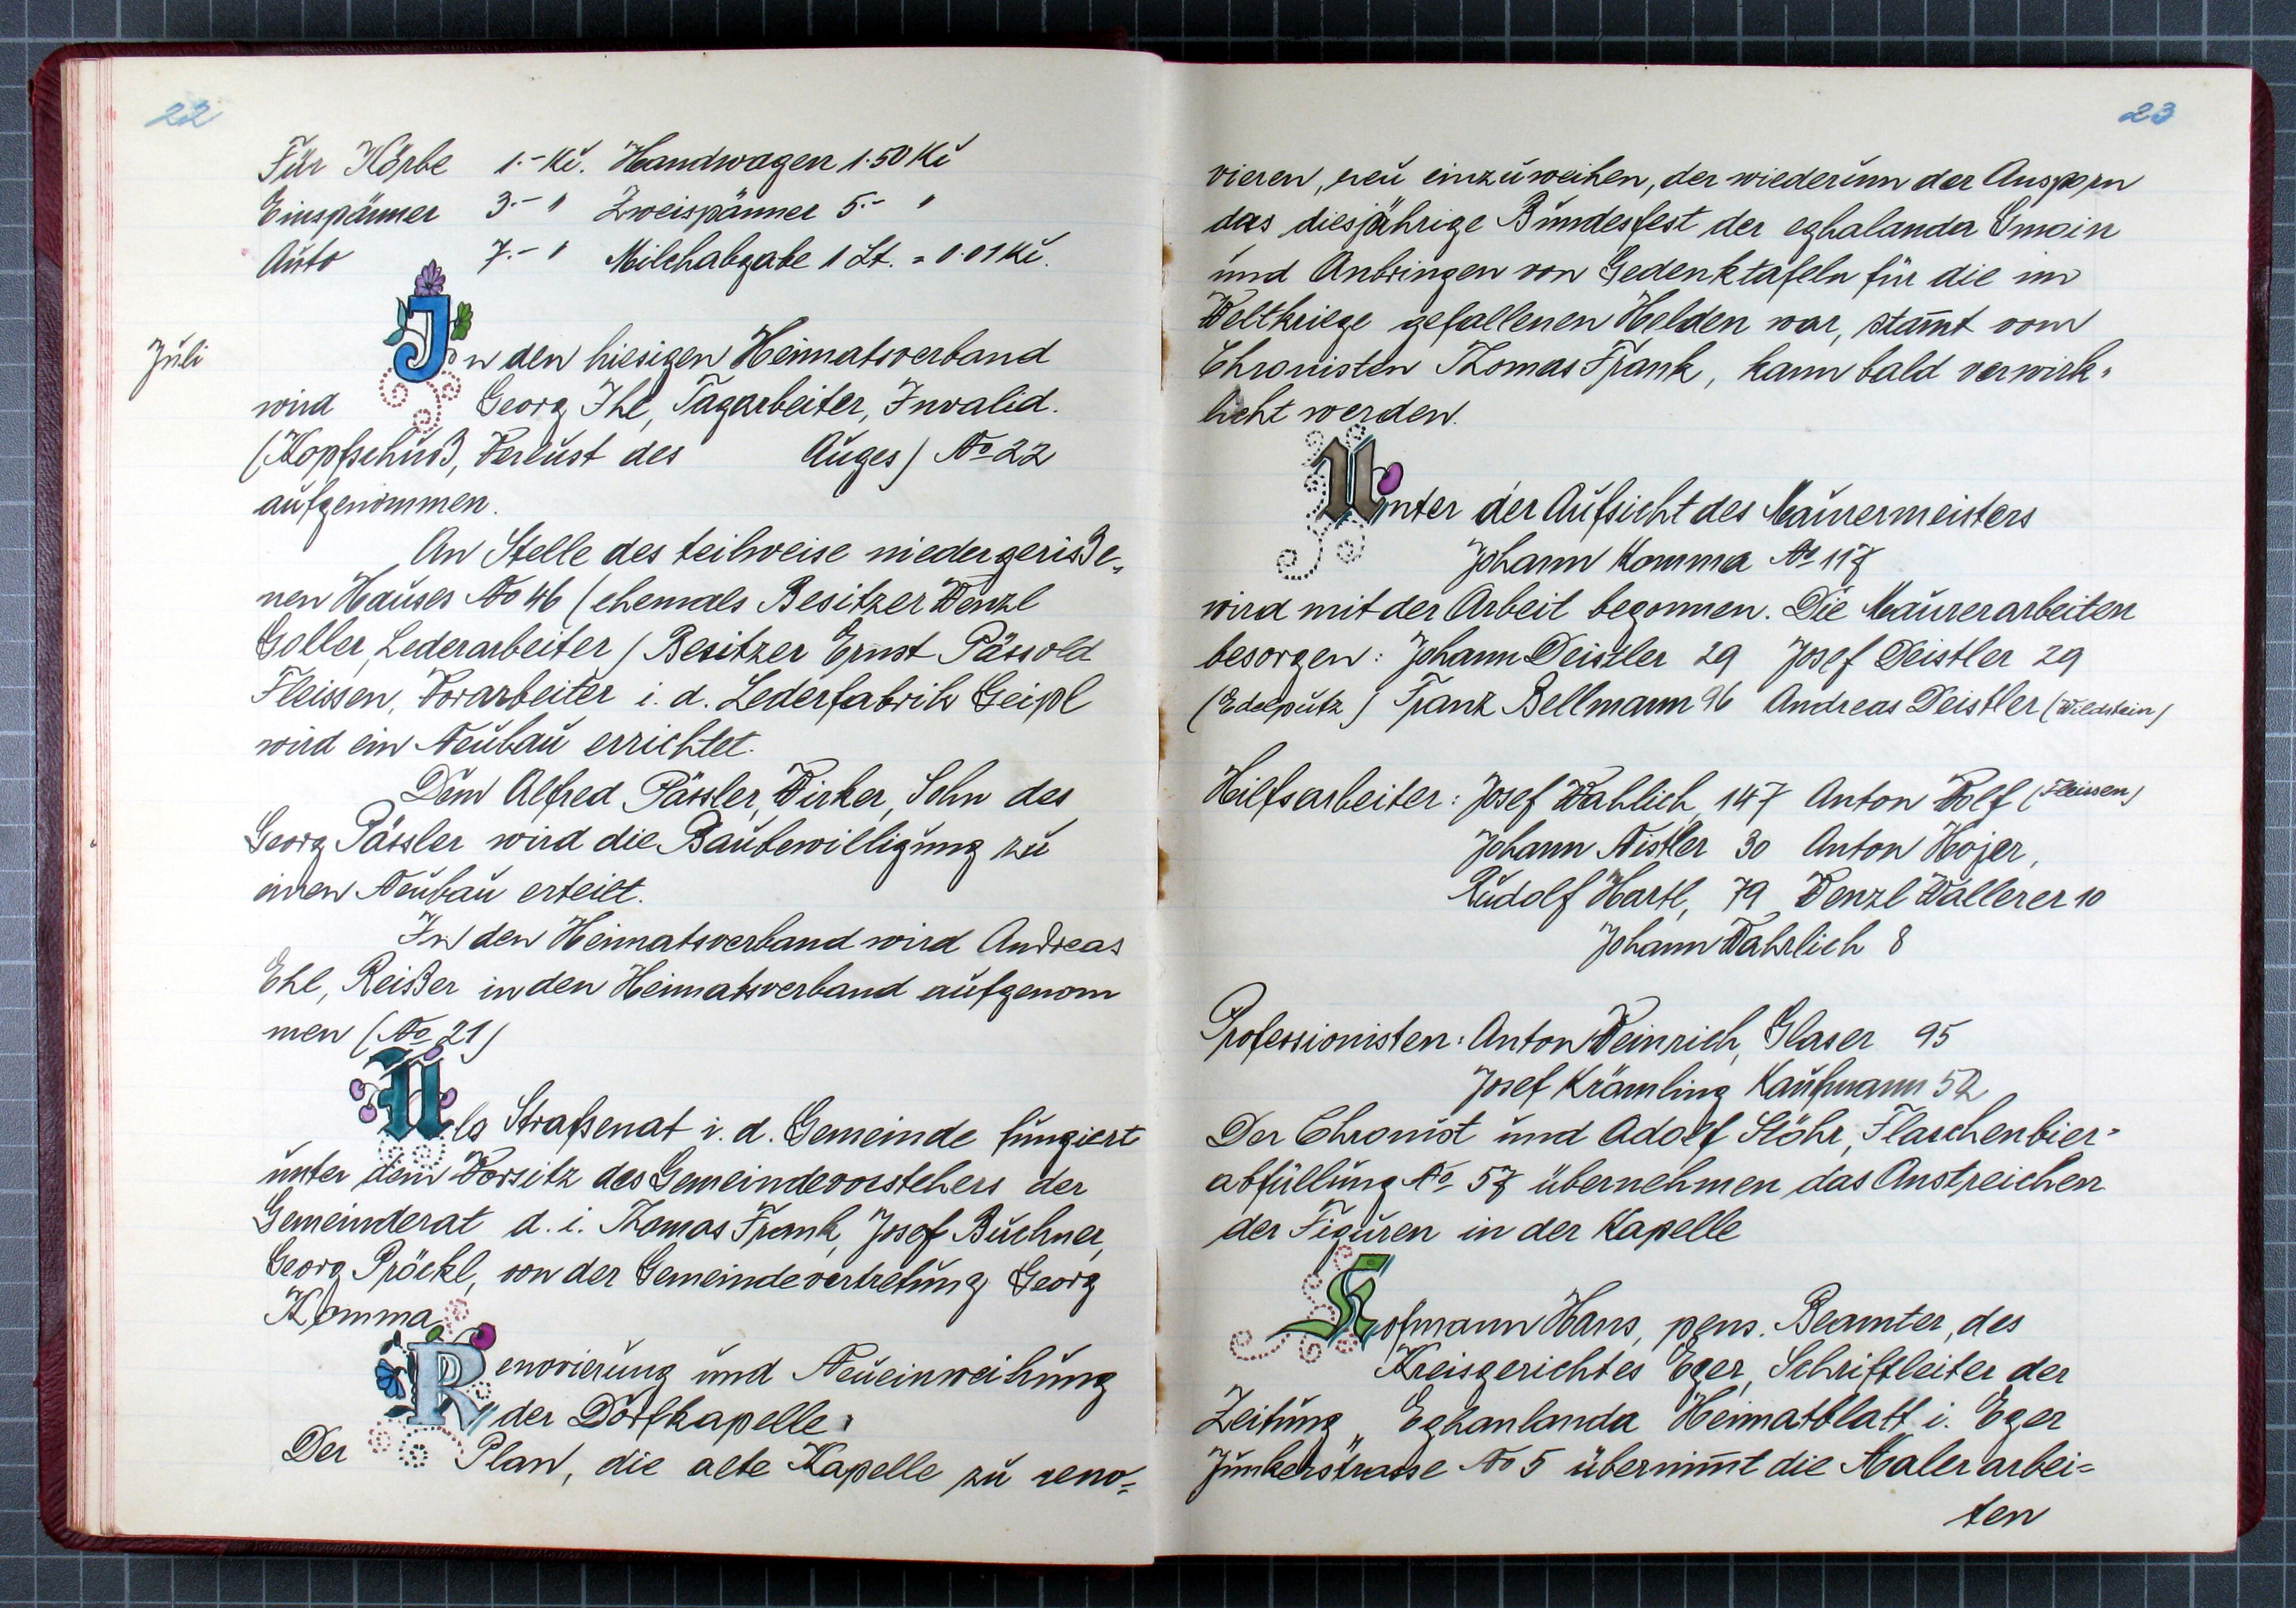 22
Für Körbe 1.- Kč. Handwagen 1.50 Kč
Einspänner 3.- " Zweispänner 5.- "
Auto 7.- " Milchabgabe 1 Lt. = 0.01 Kč.
Juli
In den hiesigen Heimatsverband
wird Georg Ihl, Tagarbeiter, Invalid.
(Kopfschuß, Verlust des Auges) No 22
aufgenommen.
An Stelle des teilweise niedergeriße-
nen Hauses No 46 (ehemals Besitzer Wenzl
Goller, Lederarbeiter) Besitzer Ernst Pässold
Fleissen, Vorarbeiter i. d. Lederfabrik Geipl
wird ein Neubau errichtet.
Dem Alfred Pässler, Wirker, Sohn des
Georg Pässler wird die Baubewilligung zu
einen Neubau erteilt.
In den Heimatsverband wird Andreas
Ehl, Reißer in den Heimatsverband aufgenom
men (No 21)
Als Strafsenat i. d. Gemeinde fungiert
unter dem Vorsitz des Gemeindevorstehers der
Gemeinderat d. i. Thomas Frank, Josef Buchner,
Georg Pröckl, von der Gemeindevertretung Georg
Komma
Renovierung und Neueinweihung
der Dorfkapelle.
Der Plan, die alte Kapelle zu reno=
23
vieren, neu einzuweihen, der wiederum der Ansporn
das diesjährige Bundesfest der eghalanda Gmoin
und Anbringen von Gedenktafeln für die im
Weltkriege gefallenen Helden war, stam̄t vom
Chronisten Thomas Frank, kann bald verwirk=
licht werden.
Unter der Aufsicht des Maurermeisters
Johann Komma No 117
wird mit der Arbeit begonnen. Die Maurerarbeiten
besorgen: Johann Deistler 29 Josef Deistler 29
(Edelputz) Franz Bellmann 96 Andreas Deistler (Wildstein)
Hilfsarbeiter: Josef Wahlich, 147 Anton Wolf (Fleissen)
Johann Nistler 30 Anton Hojer,
Rudolf Hartl, 79 Wenzl Wallerer 10
Johann Wahrlich 8
Professionisten: Anton Weinrich, Glaser 95
Josef Krämling Kaufmann 52
Der Chronist und Adolf Stöhr, Flaschenbier=
abfüllung No 57 übernehmen das Anstreichen
der Figuren in der Kapelle
Hofmann Hans, pens. Beamter, des
Kreisgerichtes Eger, Schriftleiter der
Zeitung „ Eghanlanda Heimatblatt i. Eger
Junkerstrasse No 5 übernim̄t die Malerarbei=
ten